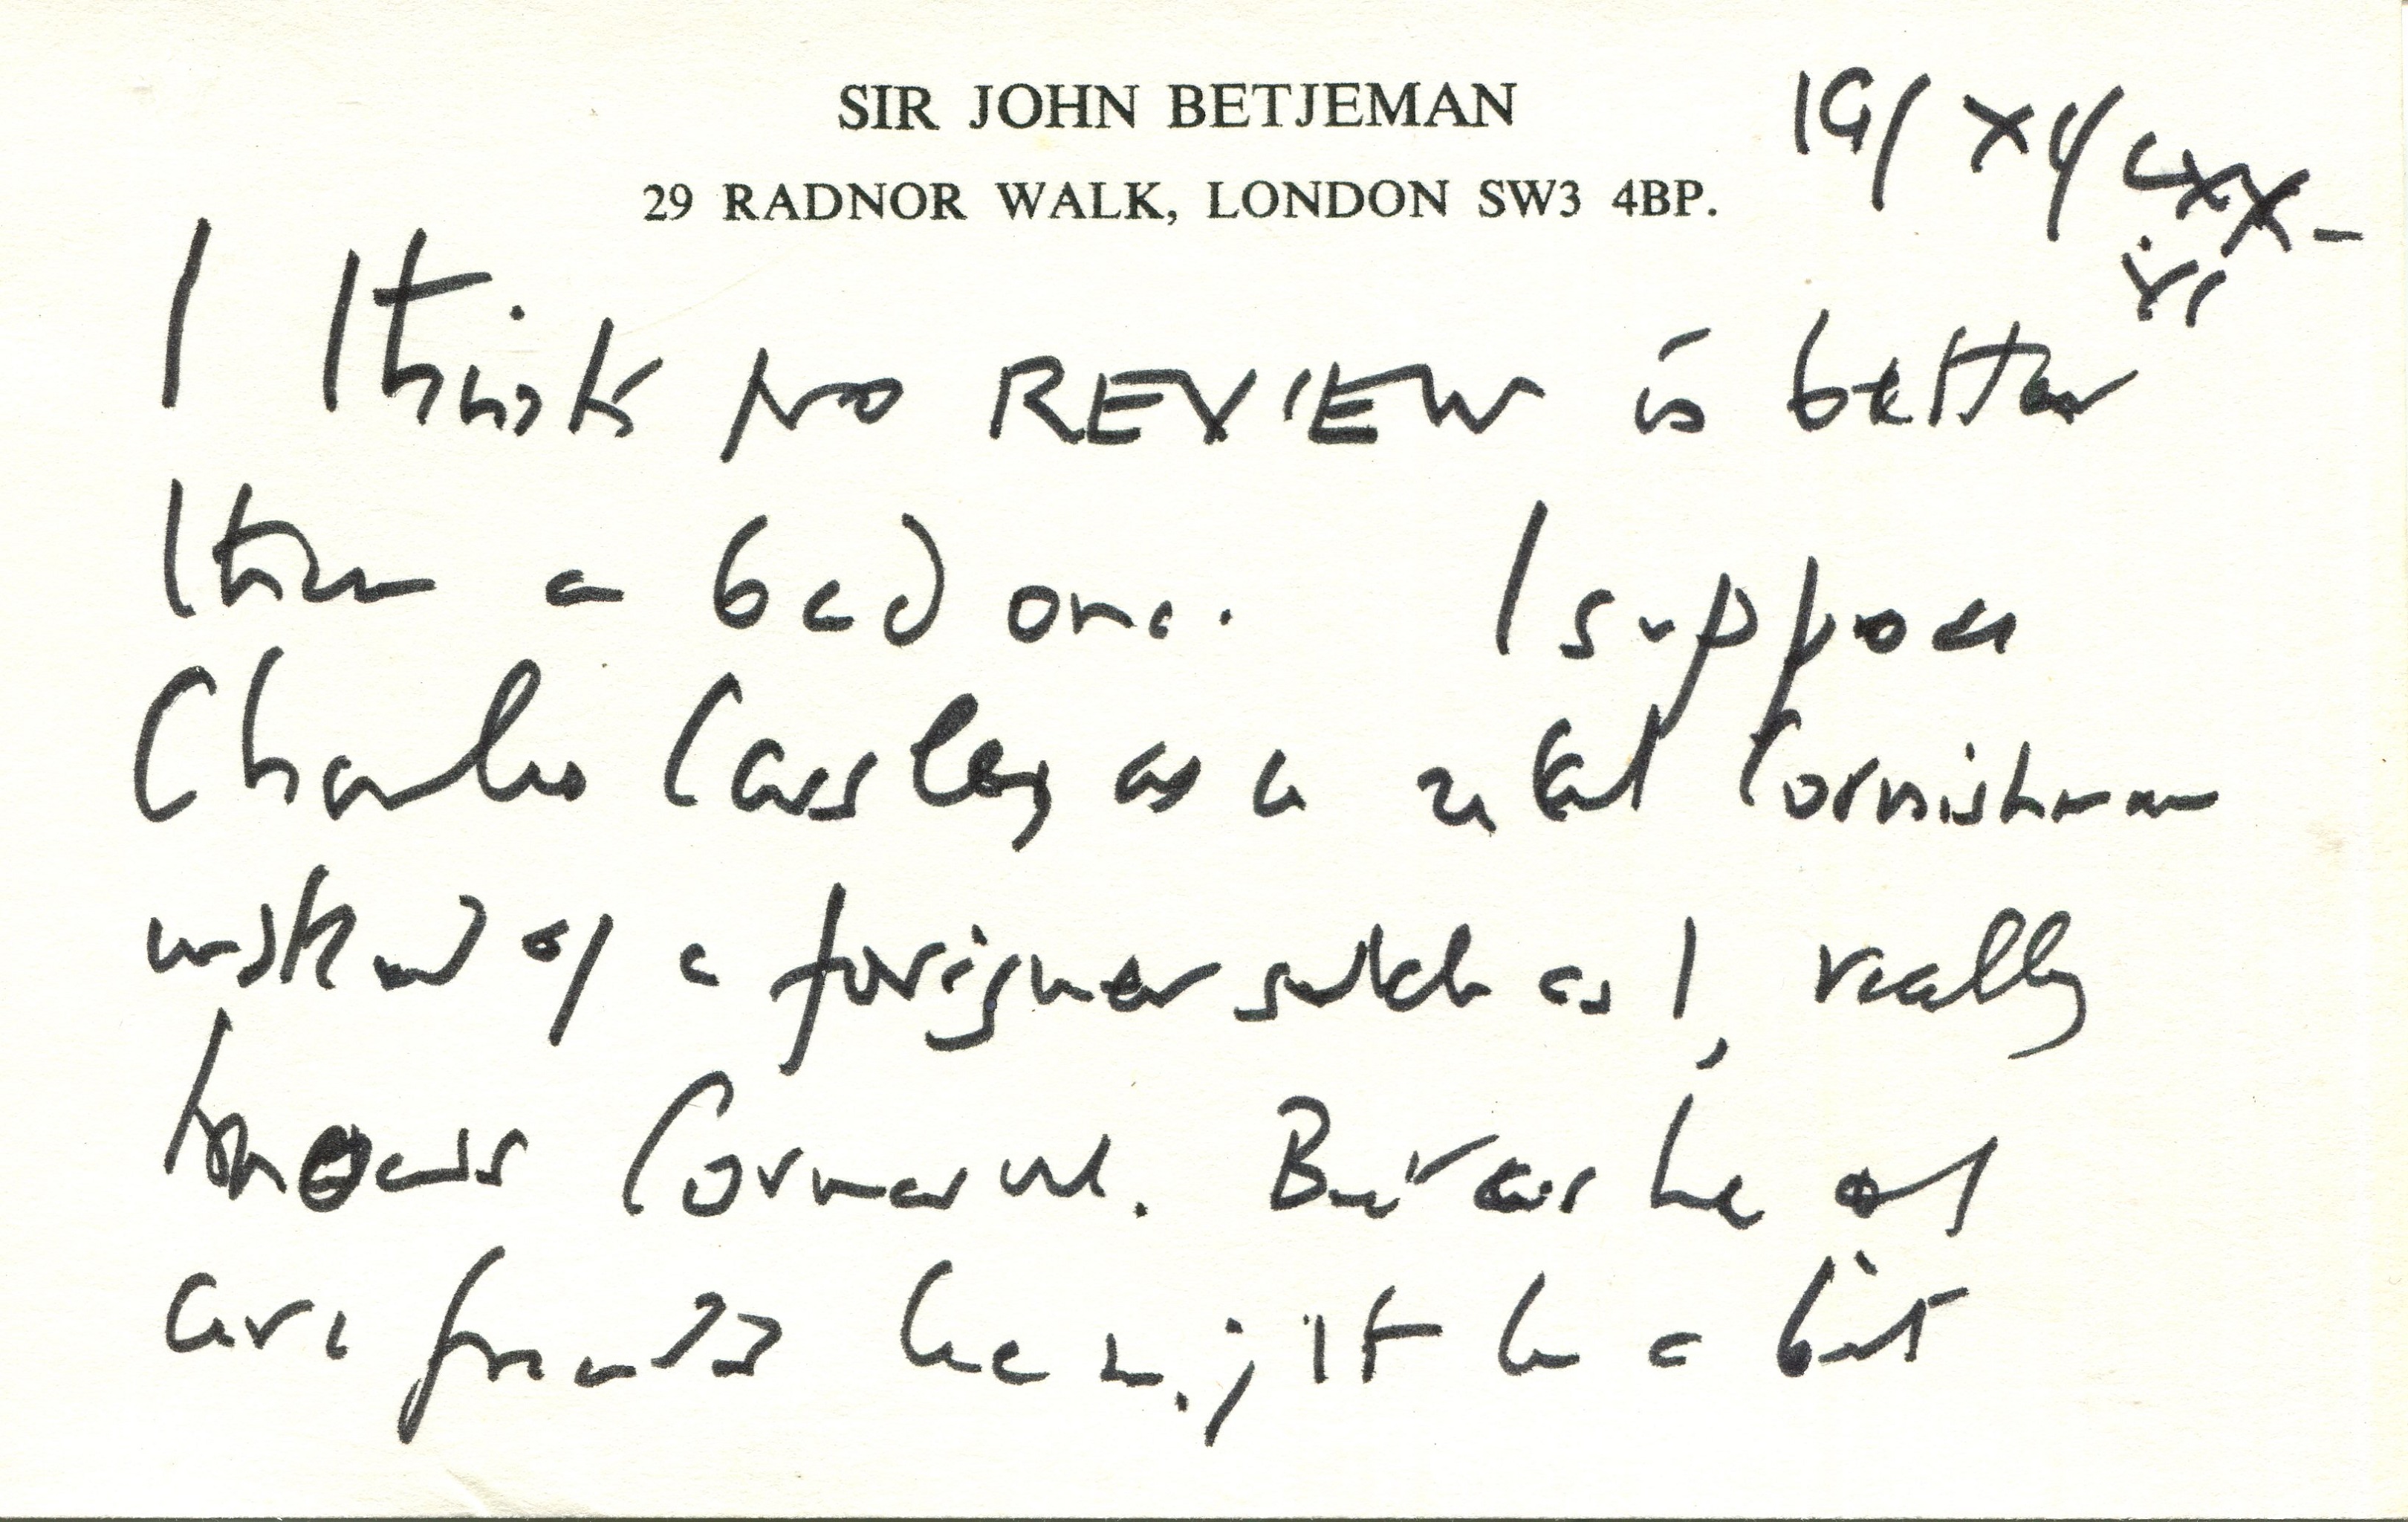 SIR JOHN BETJEMAN
29 RADNOR WALK, LONDON SW3 4BP.
I think NO REVIEW is better
than a bad one. I suppose
Charles Causley as a real Cornishman
instead of a foreigner such as I, really
knows Cornwall. But as he and
are friends he might be a bit